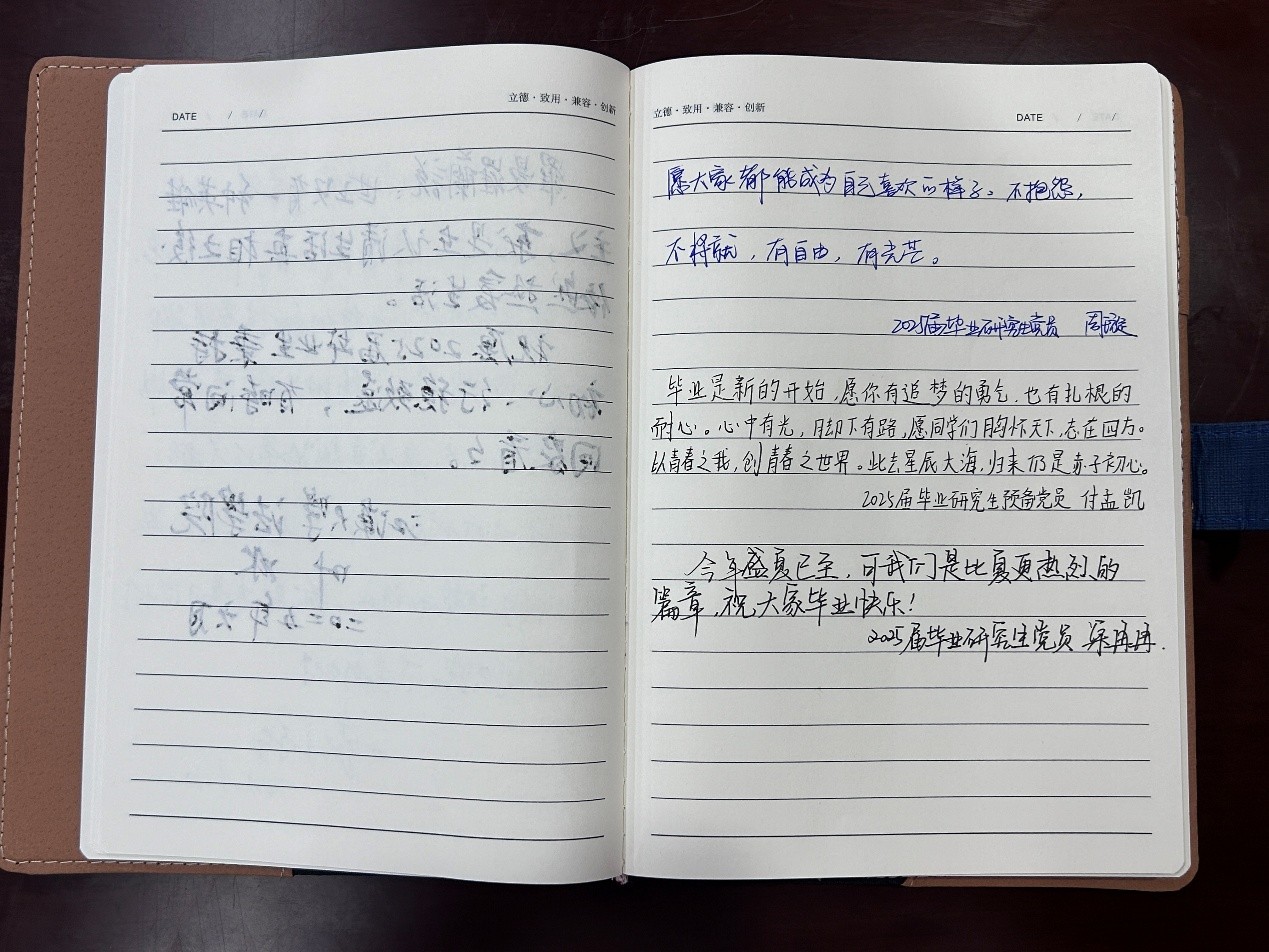 立德·致用·兼容·创新
DATE / /
立德·致用·兼容·创新
DATE / /
愿大家都能成为自己喜欢的样子。不抱怨，
不将就，有自由，有光芒。
2025届毕业研究生党员 周璇
毕业是新的开始，愿你有追梦的勇气，也有扎根的
耐心。心中有光，脚下有路，愿同学们胸怀天下，志在四方。
以青春之我，创青春之世界。此去星辰大海，归来仍是赤子初心。
2025届毕业研究生预备党员 付孟凯
今年盛夏已至，可我们是比夏更热烈的
篇章，祝大家毕业快乐！
2025届毕业研究生党员 梁冉冉.